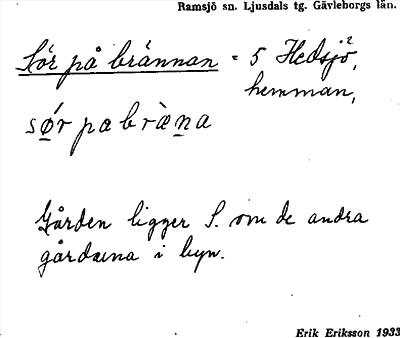 Ramsjö sn. Ljusdals tg. Gävleborgs län.
Sör på brännan = 5 Hedsjö²,
hemman,
sǿ̱r pa bræ̀ṉa
Gården ligger S. om de andra
gårdarna i byn.
Erik Eriksson 1933